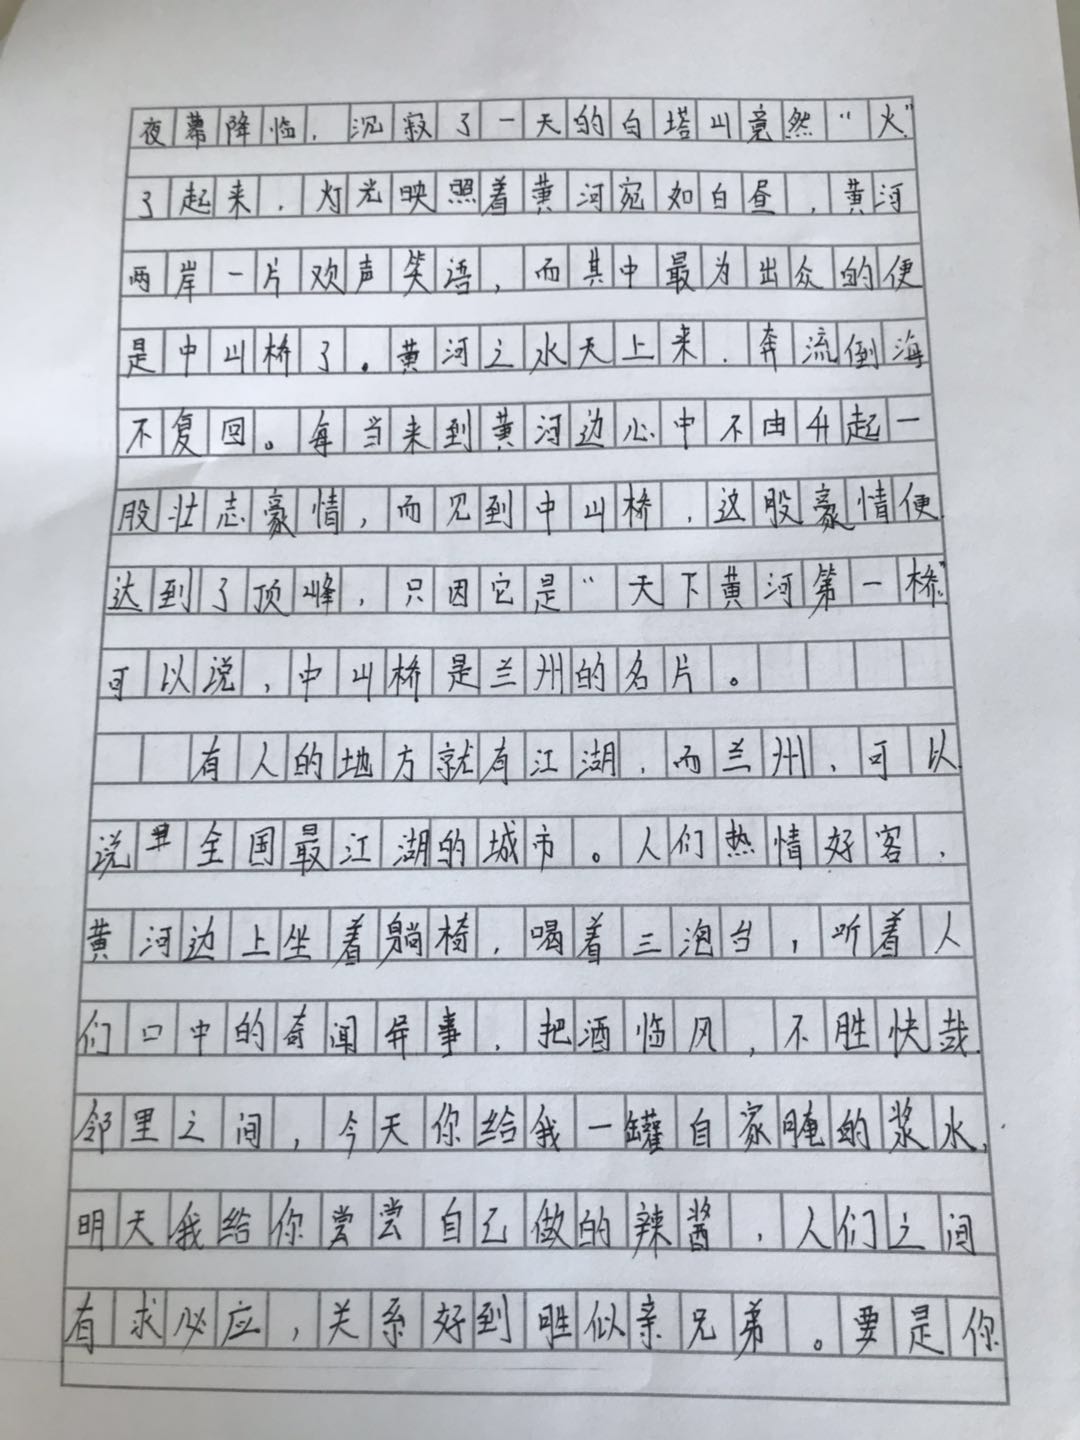 夜幕降临，沉寂了一天的白塔山竟然“火”
了起来，灯光映照着黄河宛如白昼，黄河
两岸一片欢声笑语，而其中最为出众的便
是中山桥了。黄河之水天上来，奔流倒海
不复回。每当来到黄河边心中不由升起一
股壮志豪情，而见到中山桥，这股豪情便
达到了顶峰，只因它是“天下黄河第一桥”
可以说，中山桥是兰州的名片。
有人的地方就有江湖，而兰州，可以
说全国最江湖的城市。人们热情好客，
黄河边上坐着躺椅，喝着三泡台，听着人
们口中的奇闻异事，把酒临风，不胜快哉.
邻里之间，今天你给我一罐自家腌的浆水，
明天我给你尝尝自己做的辣酱，人们之间
有求必应，关系好到胜似亲兄弟。要是你